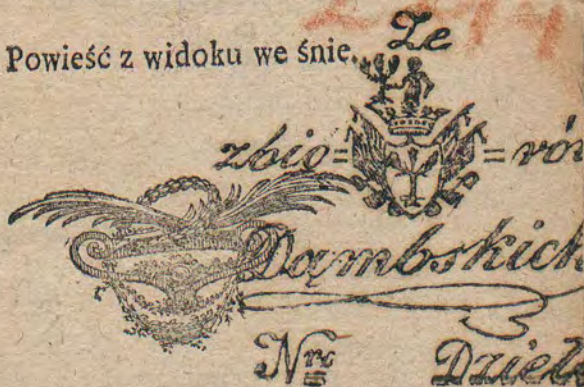 Powieść z widoku we śnie.
Ze
zbio= =rów
Dąmbskich
Nrć Dzieł